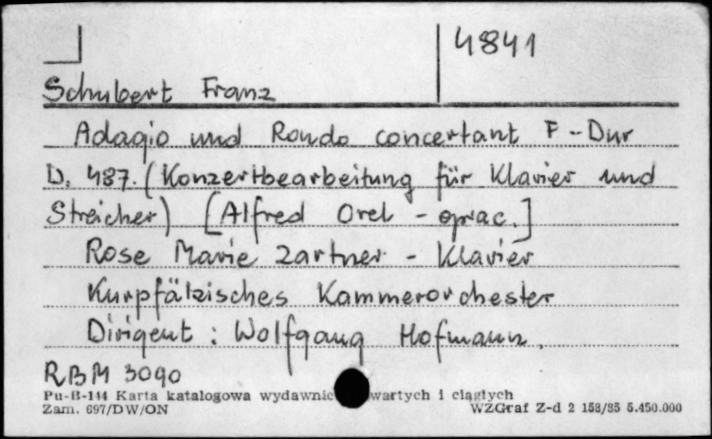 4841
Schubert Franz
Adagio und Rondo concertant F-Dur
D. 487. (Konzertbearbeitung für Klavier und
Streicher) [Alfred Orel - oprac.]
Rose Marie Zartner - Klavier
Kurpfälzisches Kammerorchester
Dirigent: Wolfgang Hofmann.
RBM 3090
Pu-B-144 Karta katalogowa wydawnic wartych i ciągłych
Zam. 697/DW/ON WZGraf Z-d 2 158/85 5.450.000